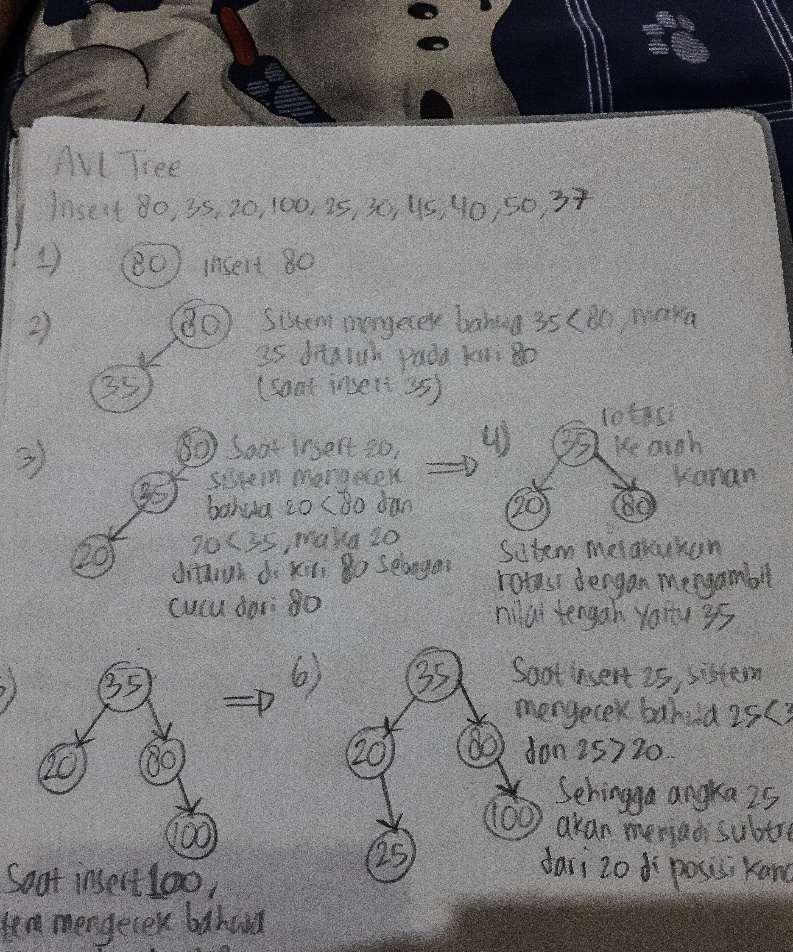 AVL Tree
Insert 80, 35, 20, 100, 25, 30, 45, 40, 50, 37
1) 80 insert 80
2) 80 Sistem mengecek bahwa 35 < 80, maka
35 ditaruh pada kiri 80
35 (saat insert 35)
3) 80 Saat insert 20,
35 sistem mengecek
bahwa 20 < 80 dan
20 20 < 35, maka 20
ditaruh di kiri 80 sebagai
cucu dari 80
⇒ 4) 35 rotasi
ke arah
kanan
20 80
Sistem melakukan
rotasi dengan mengambil
nilai tengah yaitu 35
35
20 80
100
Saat insert 100,
mengecek bahwa
⇒ 6) 35
20 80
100
25
Saat insert 25, sistem
mengecek bahwa 25 <
dan 25 > 20.
Sehingga angka 25
akan menjadi
dari 20 di posisi